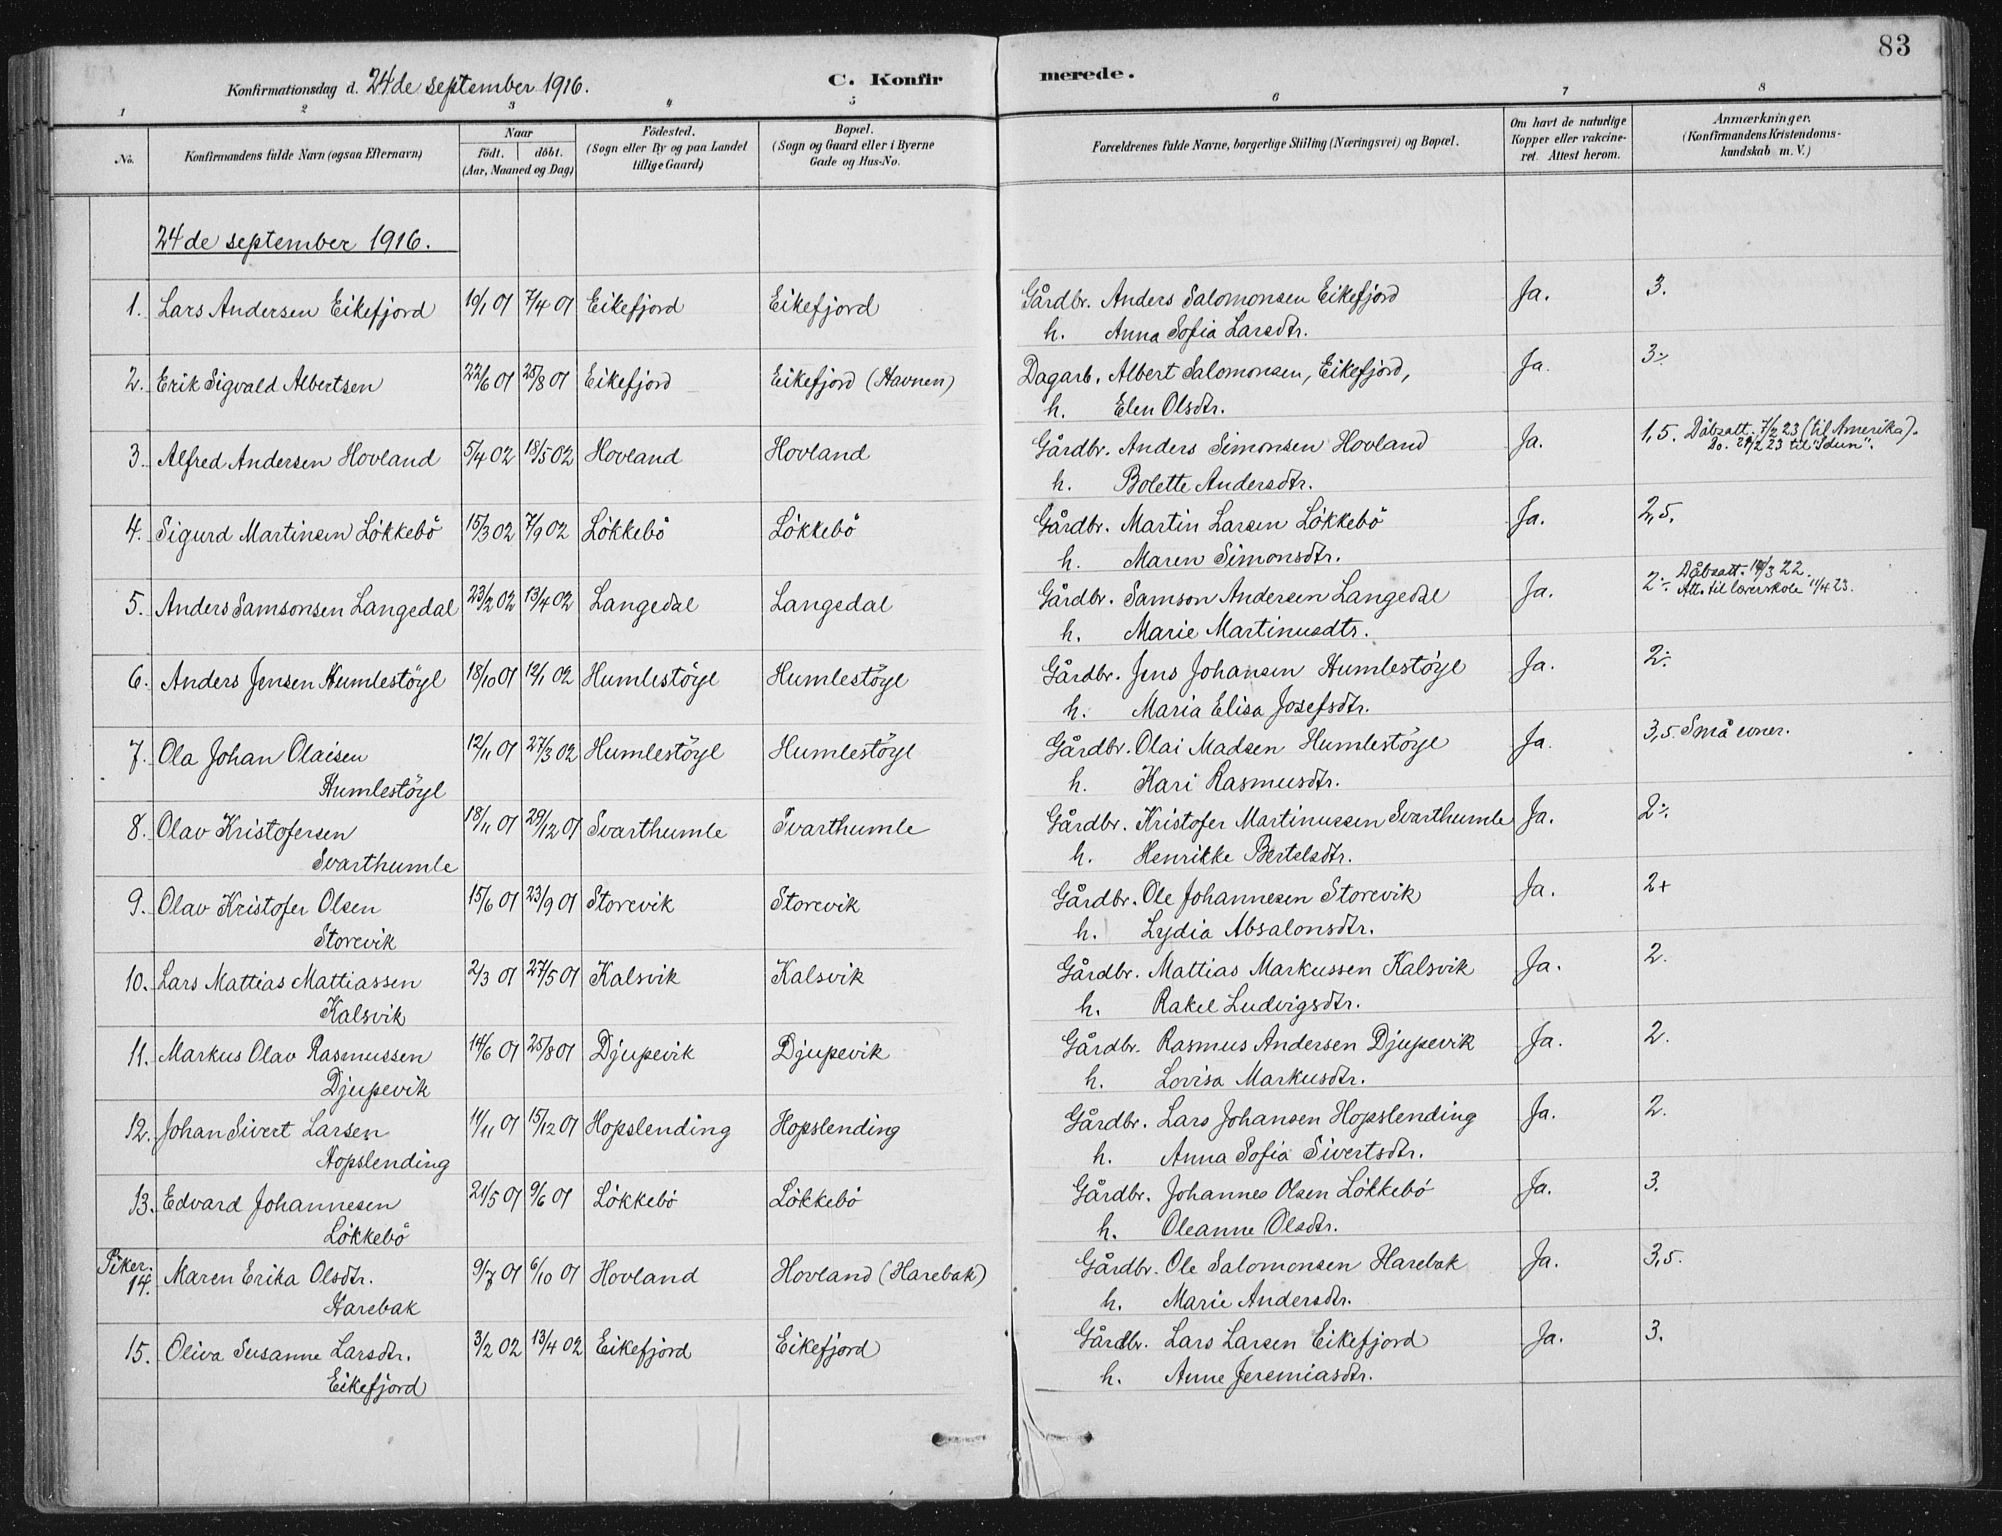 83
Konfirmationsdag d. 24de september 1916. C. Konfirmerede.
1 2 3 4 5 6 7 8
No. Konfirmandens fulde Navn (ogsaa Efternavn) Naar födt. döbt. (Aar, Maaned og Dag) Födested. (Sogn eller By og paa Landet tillige Gaard) Bopæl. (Sogn og Gaard eller i Byerne Gade og Hus-No. Forældrenes fulde Navne, borgerlige Stilling (Næringsvei) og Bopæl. Om havt de naturlige Kopper eller vakcineret. Attest herom. Anmærkninger. (Konfirmandens Kristendomskundskab m. V.)
24de september 1916.
1. Lars Andersen Eikefjord 19/1 01 7/4 01 Eikefjord Eikefjord Gårdbr. Anders Salomonsen Eikefjord Ja. 3.
h. Anna Sofia Larsdtr.
2. Erik Sigvald Albertsen 22/6 01 25/8 01 Eikefjord Eikefjord (Havnen) Dagarb. Albert Salomonsen, Eikefjord, Ja. 3÷
h. Elen Olsdtr.
3. Alfred Andersen Hovland 5/4 02 18/5 02 Hovland Hovland Gårdbr. Anders Simonsen Hovland Ja. 1,5. Dåbsatt. 7/2 23 (til Amerika).
Do. 21/2 23 til "Idun".
h. Bolette Andersdtr.
4. Sigurd Martinsen Lökkebö 15/3 02 7/9 02 Lökkebö Lökkebö Gårdbr. Martin Larsen Lökkebö Ja. 2,5.
h. Maren Simonsdtr.
5. Anders Samsonsen Langedal 23/2 02 13/4 02 Langedal Langedal Gårdbr. Samson Andersen Langedal Ja. 2÷ Dåbsatt. 14/3 22.
Att. til lærerskole 11/4 23.
h. Marie Martinusdtr.
6. Anders Jensen Humlestöyl 18/10 01 12/1 02 Humlestöyl Humlestöyl Gårdbr. Jens Johansen Humlestöyl Ja. 2÷
h. Maria Elisa Josefsdtr.
7. Ola Johan Olaisen 12/11 01 27/3 02 Humlestöyl Humlestöyl Gårdbr. Olai Madsen Humlestöyl Ja. 3,5. Små evner.
Humlestöyl h. Kari Rasmusdtr.
8. Olav Kristofersen 18/11 01 29/12 01 Svarthumle Svarthumle Gårdbr. Kristofer Martinussen Svarthumle Ja. 2÷
Svarthumle h. Henrikke Bertelsdtr.
9. Olav Kristofer Olsen 15/6 01 23/9 01 Storevik Storevik Gårdbr. Ole Johannesen Storevik Ja. 2+
Storevik h. Lydia Absalonsdtr.
10. Lars Mattias Mattiassen 2/3 01 27/5 01 Kalsvik Kalsvik Gårdbr. Mattias Markussen Kalsvik Ja. 2.
Kalsvik h. Rakel Ludvigsdtr.
11. Markus Olav Rasmussen 14/6 01 25/8 01 Djupevik Djupevik Gårdbr. Rasmus Andersen Djupevik Ja. 2.
Djupevik h. Lovisa Markusdtr.
12. Johan Sivert Larsen 11/11 01 15/12 01 Hopslending Hopslending Gårdbr. Lars Johansen Hopslending Ja. 2.
Hopslending h. Anna Sofia Sivertsdtr.
13. Edvard Johannesen 21/5 01 9/6 01 Lökkebö Lökkebö Gårdbr. Johannes Olsen Lökkebö Ja. 3.
Lökkebö h. Oleanne Olsdtr.
Piker.
14. Maren Erika Olsdtr. 9/7 01 6/10 01 Hovland Hovland (Harebak) Gårdbr. Ole Salomonsen Harebak Ja. 3,5.
Harebak h. Marie Andersdtr.
15. Oliva Susanne Larsdtr. 3/2 02 13/4 02 Eikefjord Eikefjord Gårdbr. Lars Larsen Eikefjord Ja. 3.
Eikefjord h. Anne Jeremiasdtr.